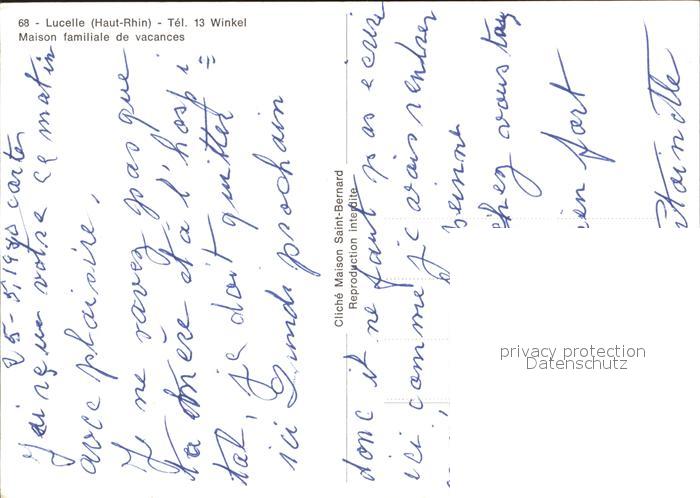 68 - Lucelle (Haut-Rhin) - Tél. 13 Winkel
Maison familiale de vacances
25-5, carte
J'ai reçu votre ce matin
avec plaisire,
Je ne savez pas que
ta mère et a l'hospi
tal, je doit quitter
ici Lundi prochain
Cliché Maison Saint-Bernard
Reproduction interdite
donc il ne faut pas ecrire
ici comme je vais rentrer
chez vous
fort
privacy protection
Datenschutz